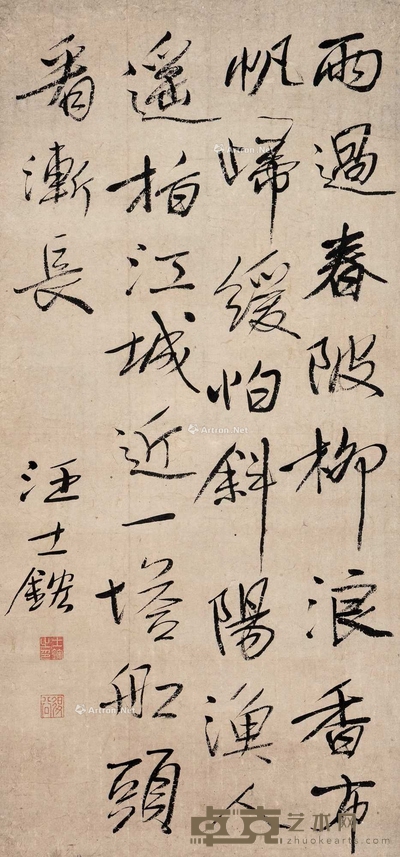 雨過春陂柳浪香布
帆歸緩怕斜陽漁人
遥指江城近一塔船頭
看漸長
汪士鋐
Artron.Net
卓克艺术网
www.zhuokearts.com